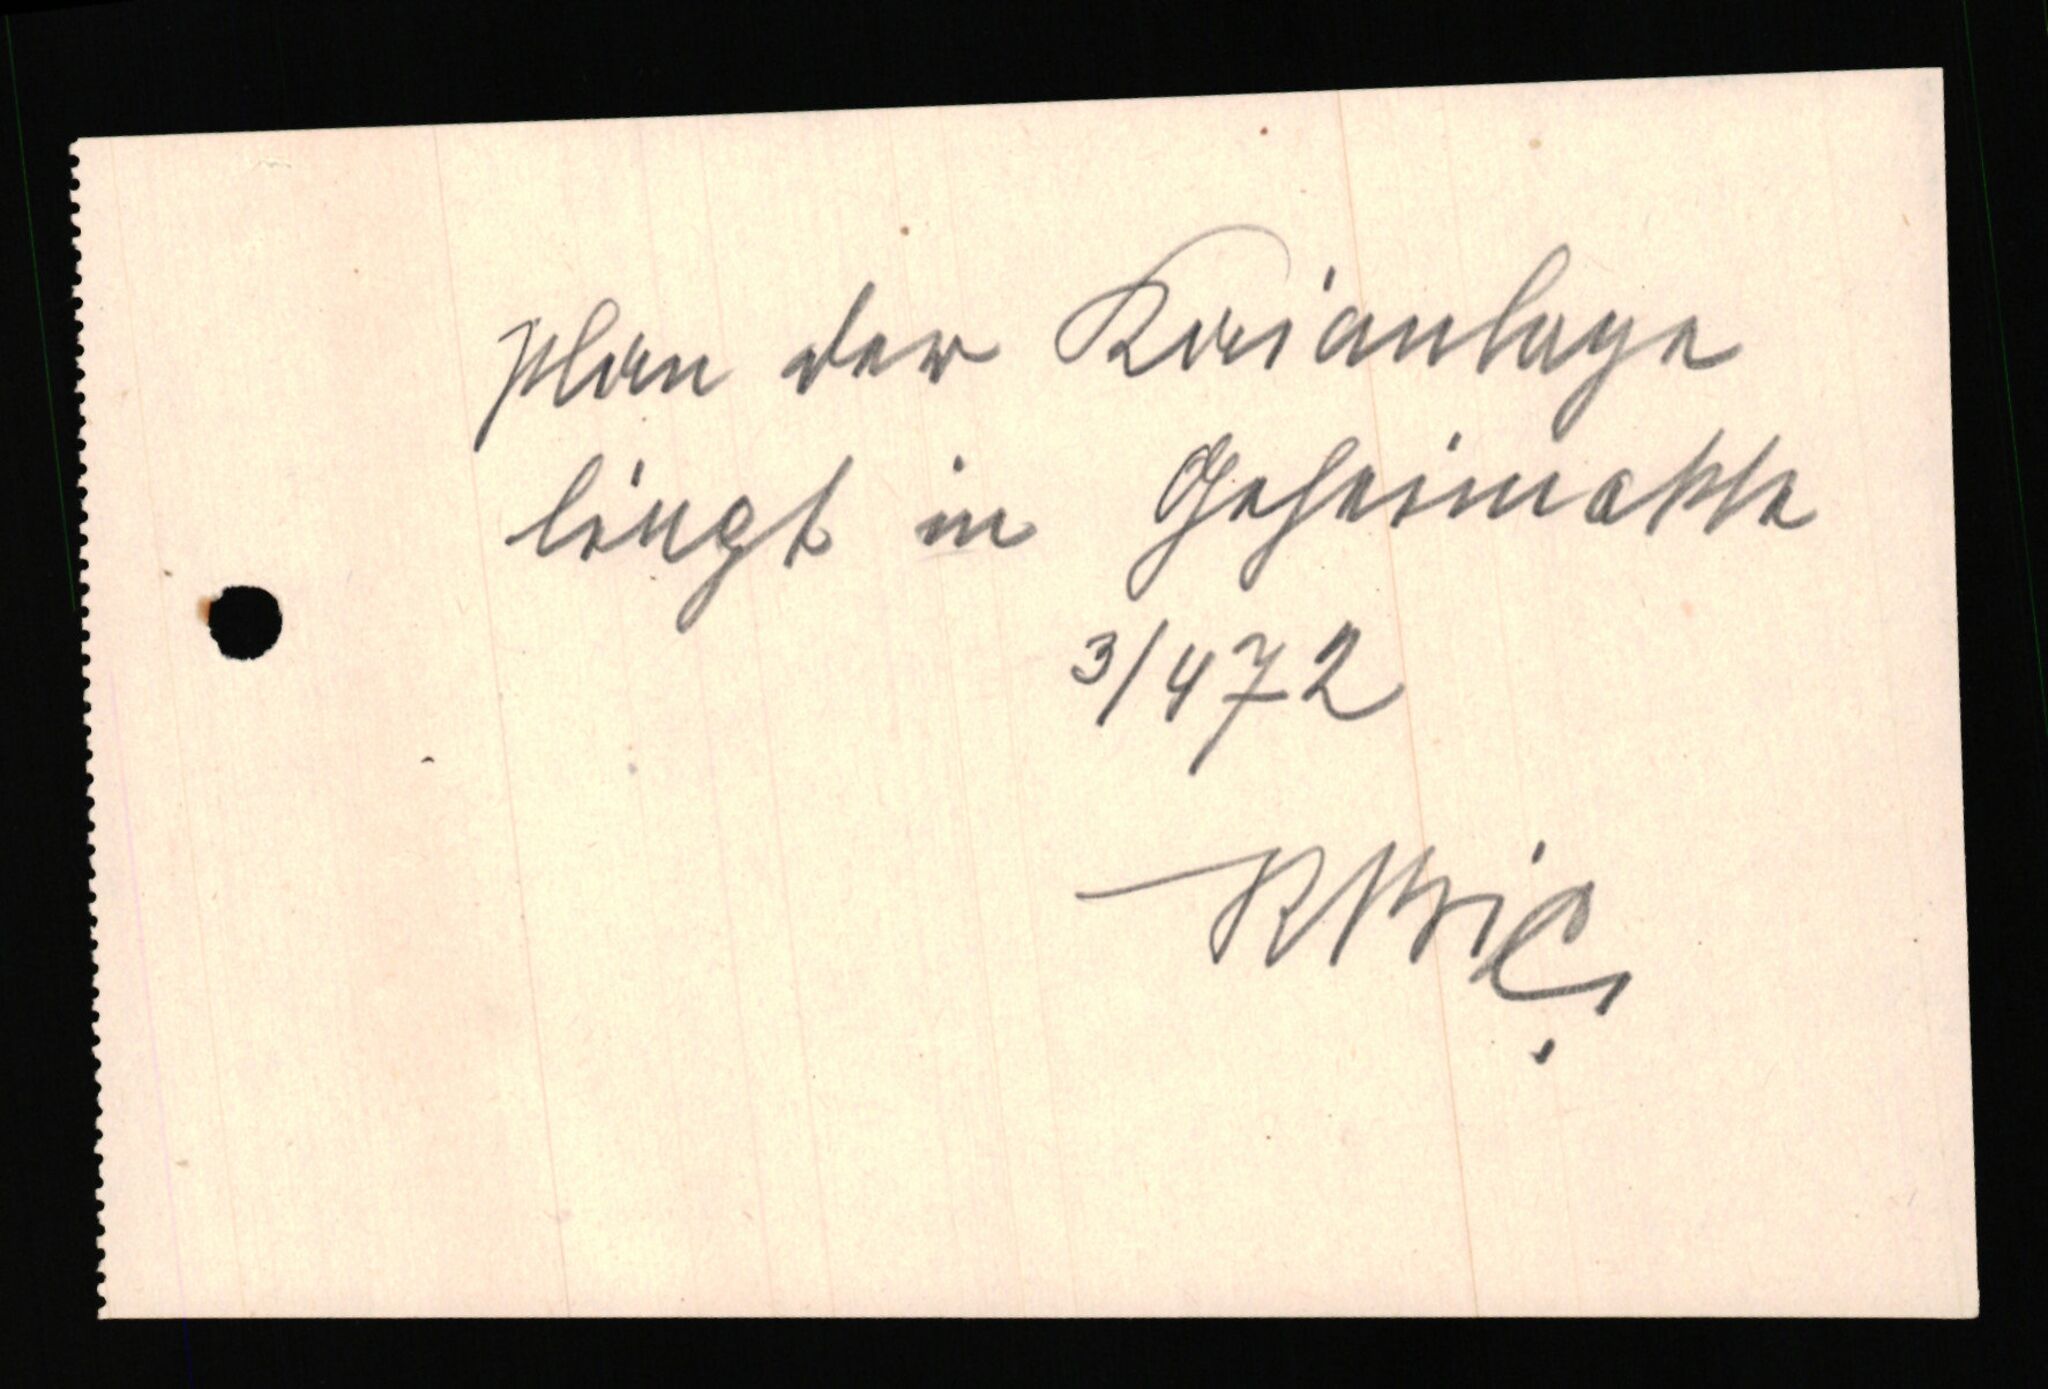 Plan der Kaianlage
liegt in Geheimakte
3/472